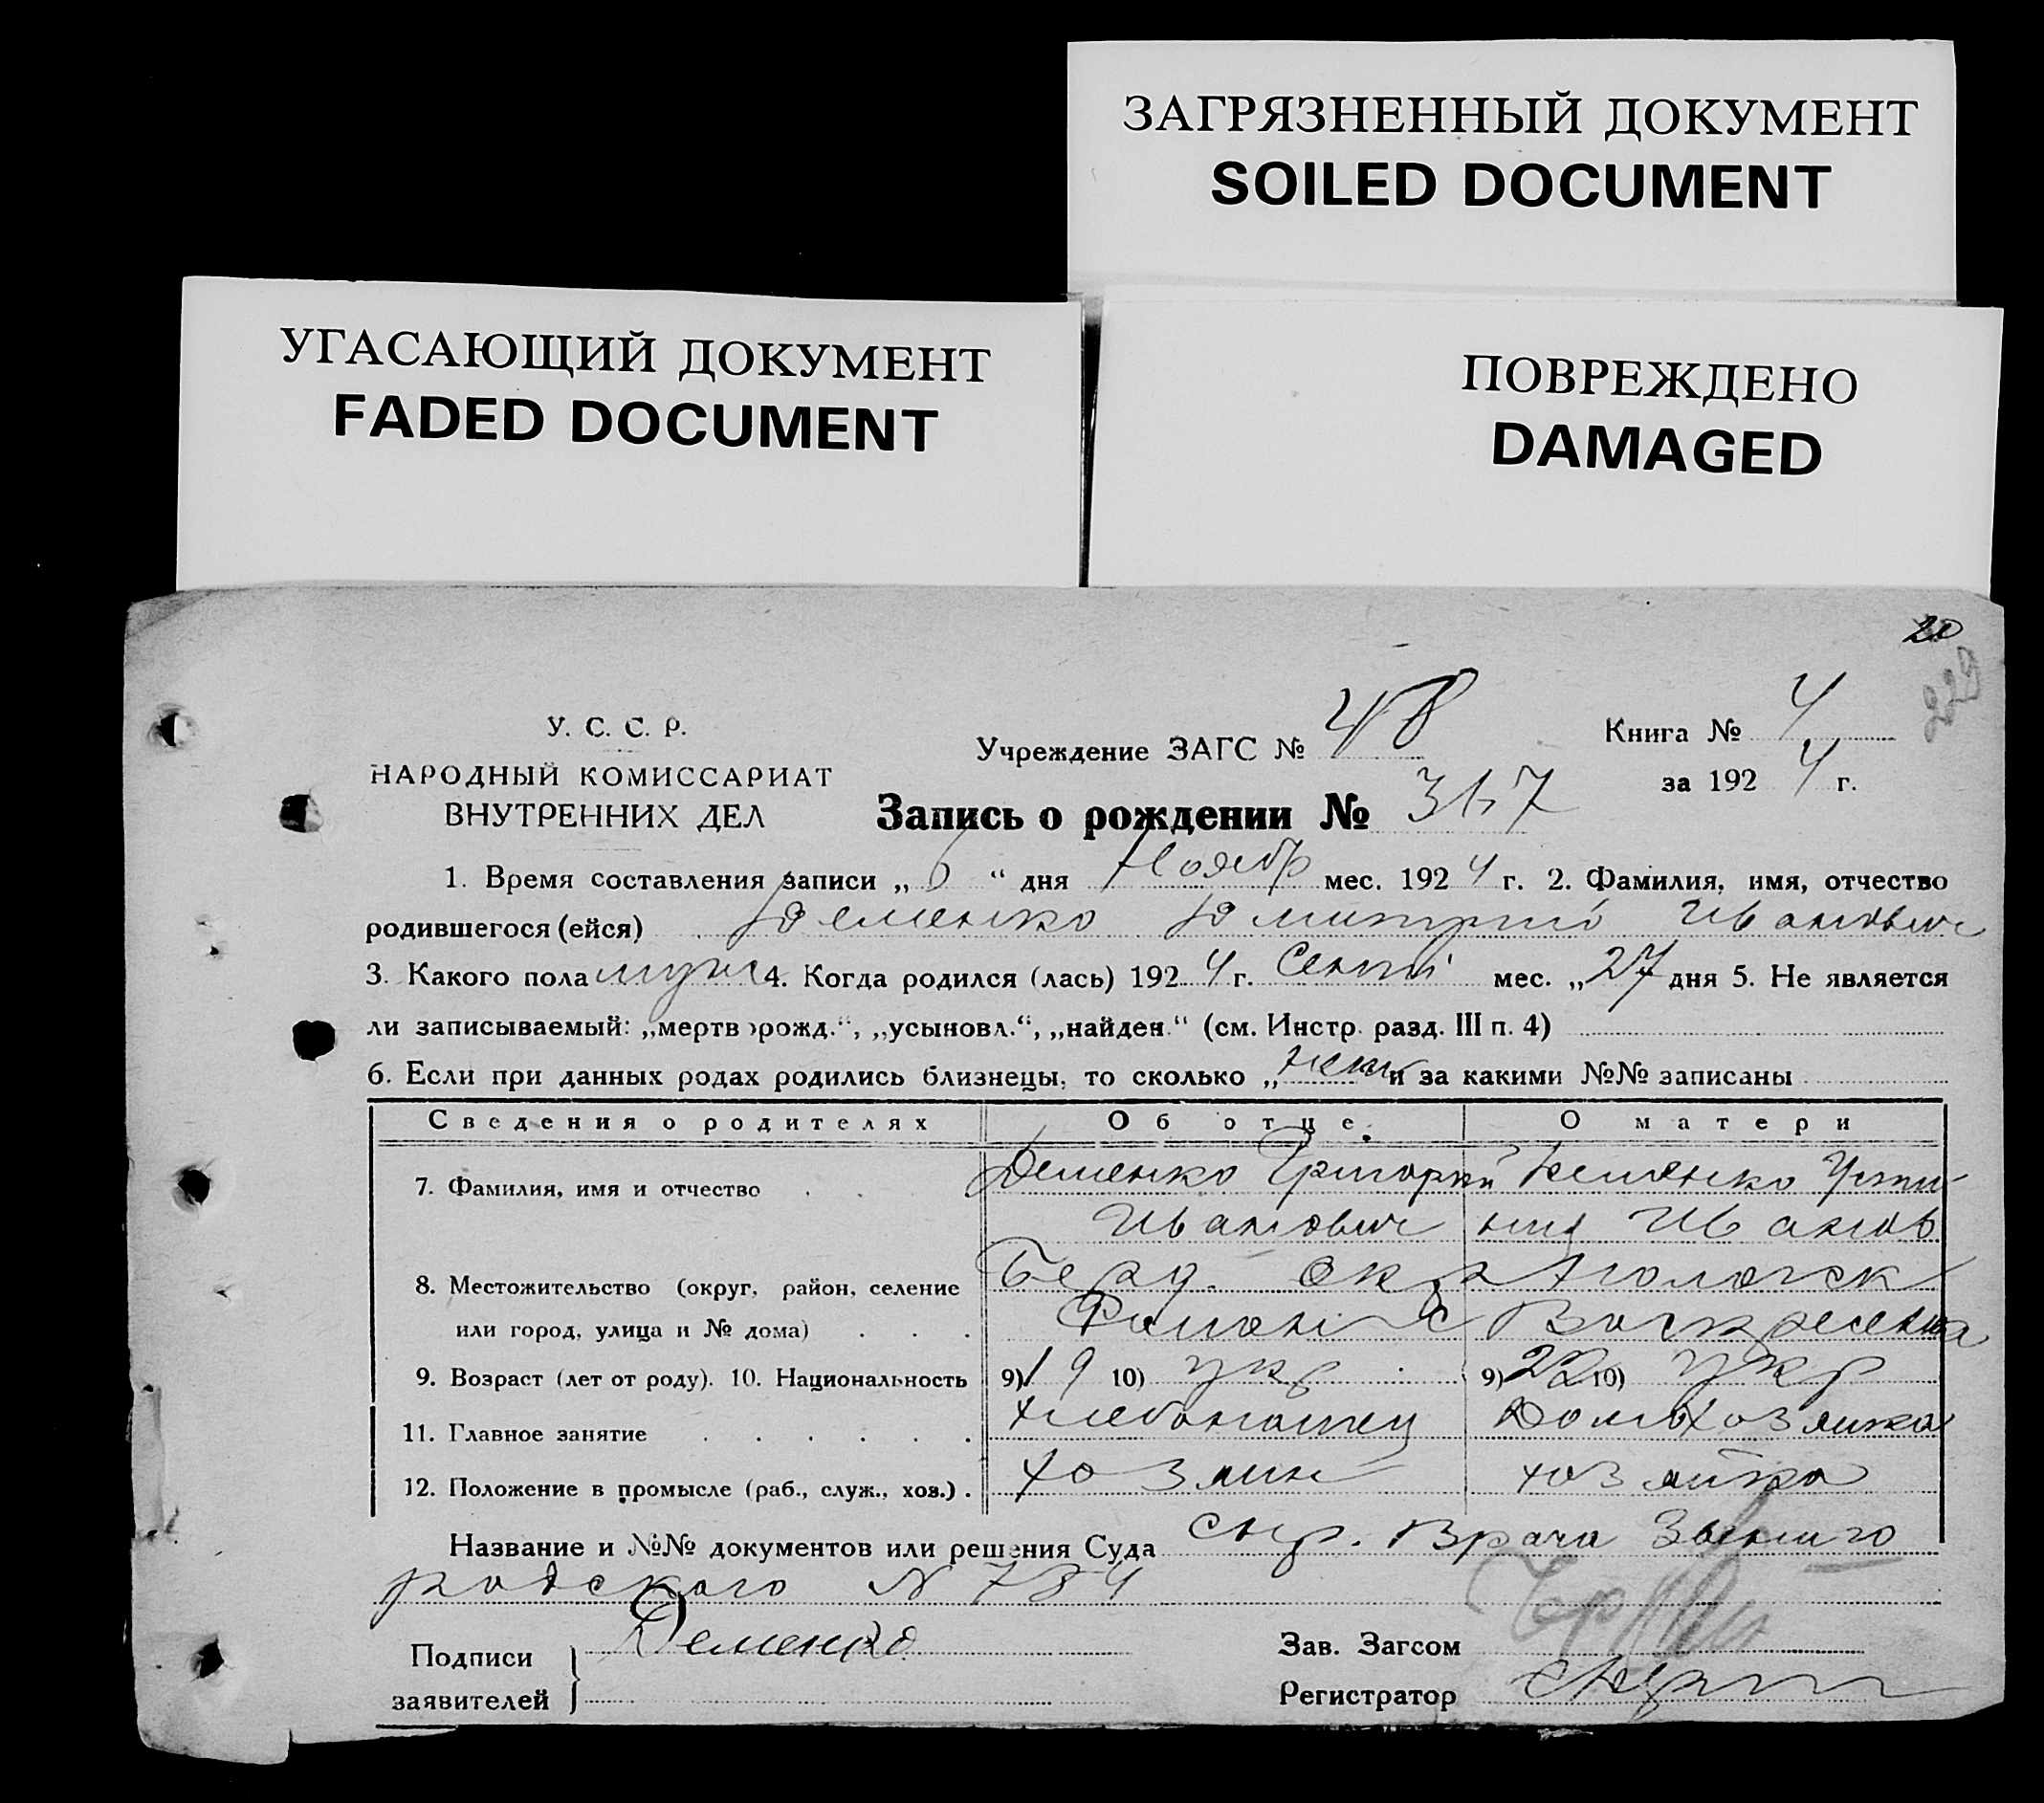 ЗАГРЯЗНЕННЫЙ ДОКУМЕНТ
SOILED DOCUMENT
УГАСАЮЩИЙ ДОКУМЕНТ
FADED DOCUMENT
ПОВРЕЖДЕНО
DAMAGED
20
229
У. С. С. Р.
НАРОДНЫЙ КОМИССАРИАТ
ВНУТРЕННИХ ДЕЛ
Учреждение ЗАГС № 48
Книга № 4
за 1924 г.
Запись о рождении №
1. Время составления записи „ 6 “ дня Ноябр мес. 1924 г. 2. Фамилия, имя, отчество
родившегося (ейся) Деменко Дмитрий Иванович
3. Какого пола муж 4. Когда родился (лась) 1924 г. Сент мес. „ 27 дня 5. Не является
ли записываемый: „мертворожд.“, „усыновл.“, „найден.“ (см. Инстр. разд. III п. 4)
6. Если при данных родах родились близнецы, то сколько „ и за какими №№ записаны
Сведения о родителях Об отце. О матери
7. Фамилия, имя и отчество Деменко Григорий Деменко Усти-
Иванович ния Иванов
8. Местожительство (округ, район, селение Берд. окр
или город, улица и № дома) с Воскресенка
9. Возраст (лет от роду). 10. Национальность 9) 19 10) укр 9) 22 10) укр
11. Главное занятие Хлебопашец Домохозяйка
12. Положение в промысле (раб., служ., хоз.) . хозяин хозяйка
Название и №№ документов или решения Суда спр. Врача Звениго
родского N 784
Подписи заявителей Деменко
Зав. Загсом
Регистратор